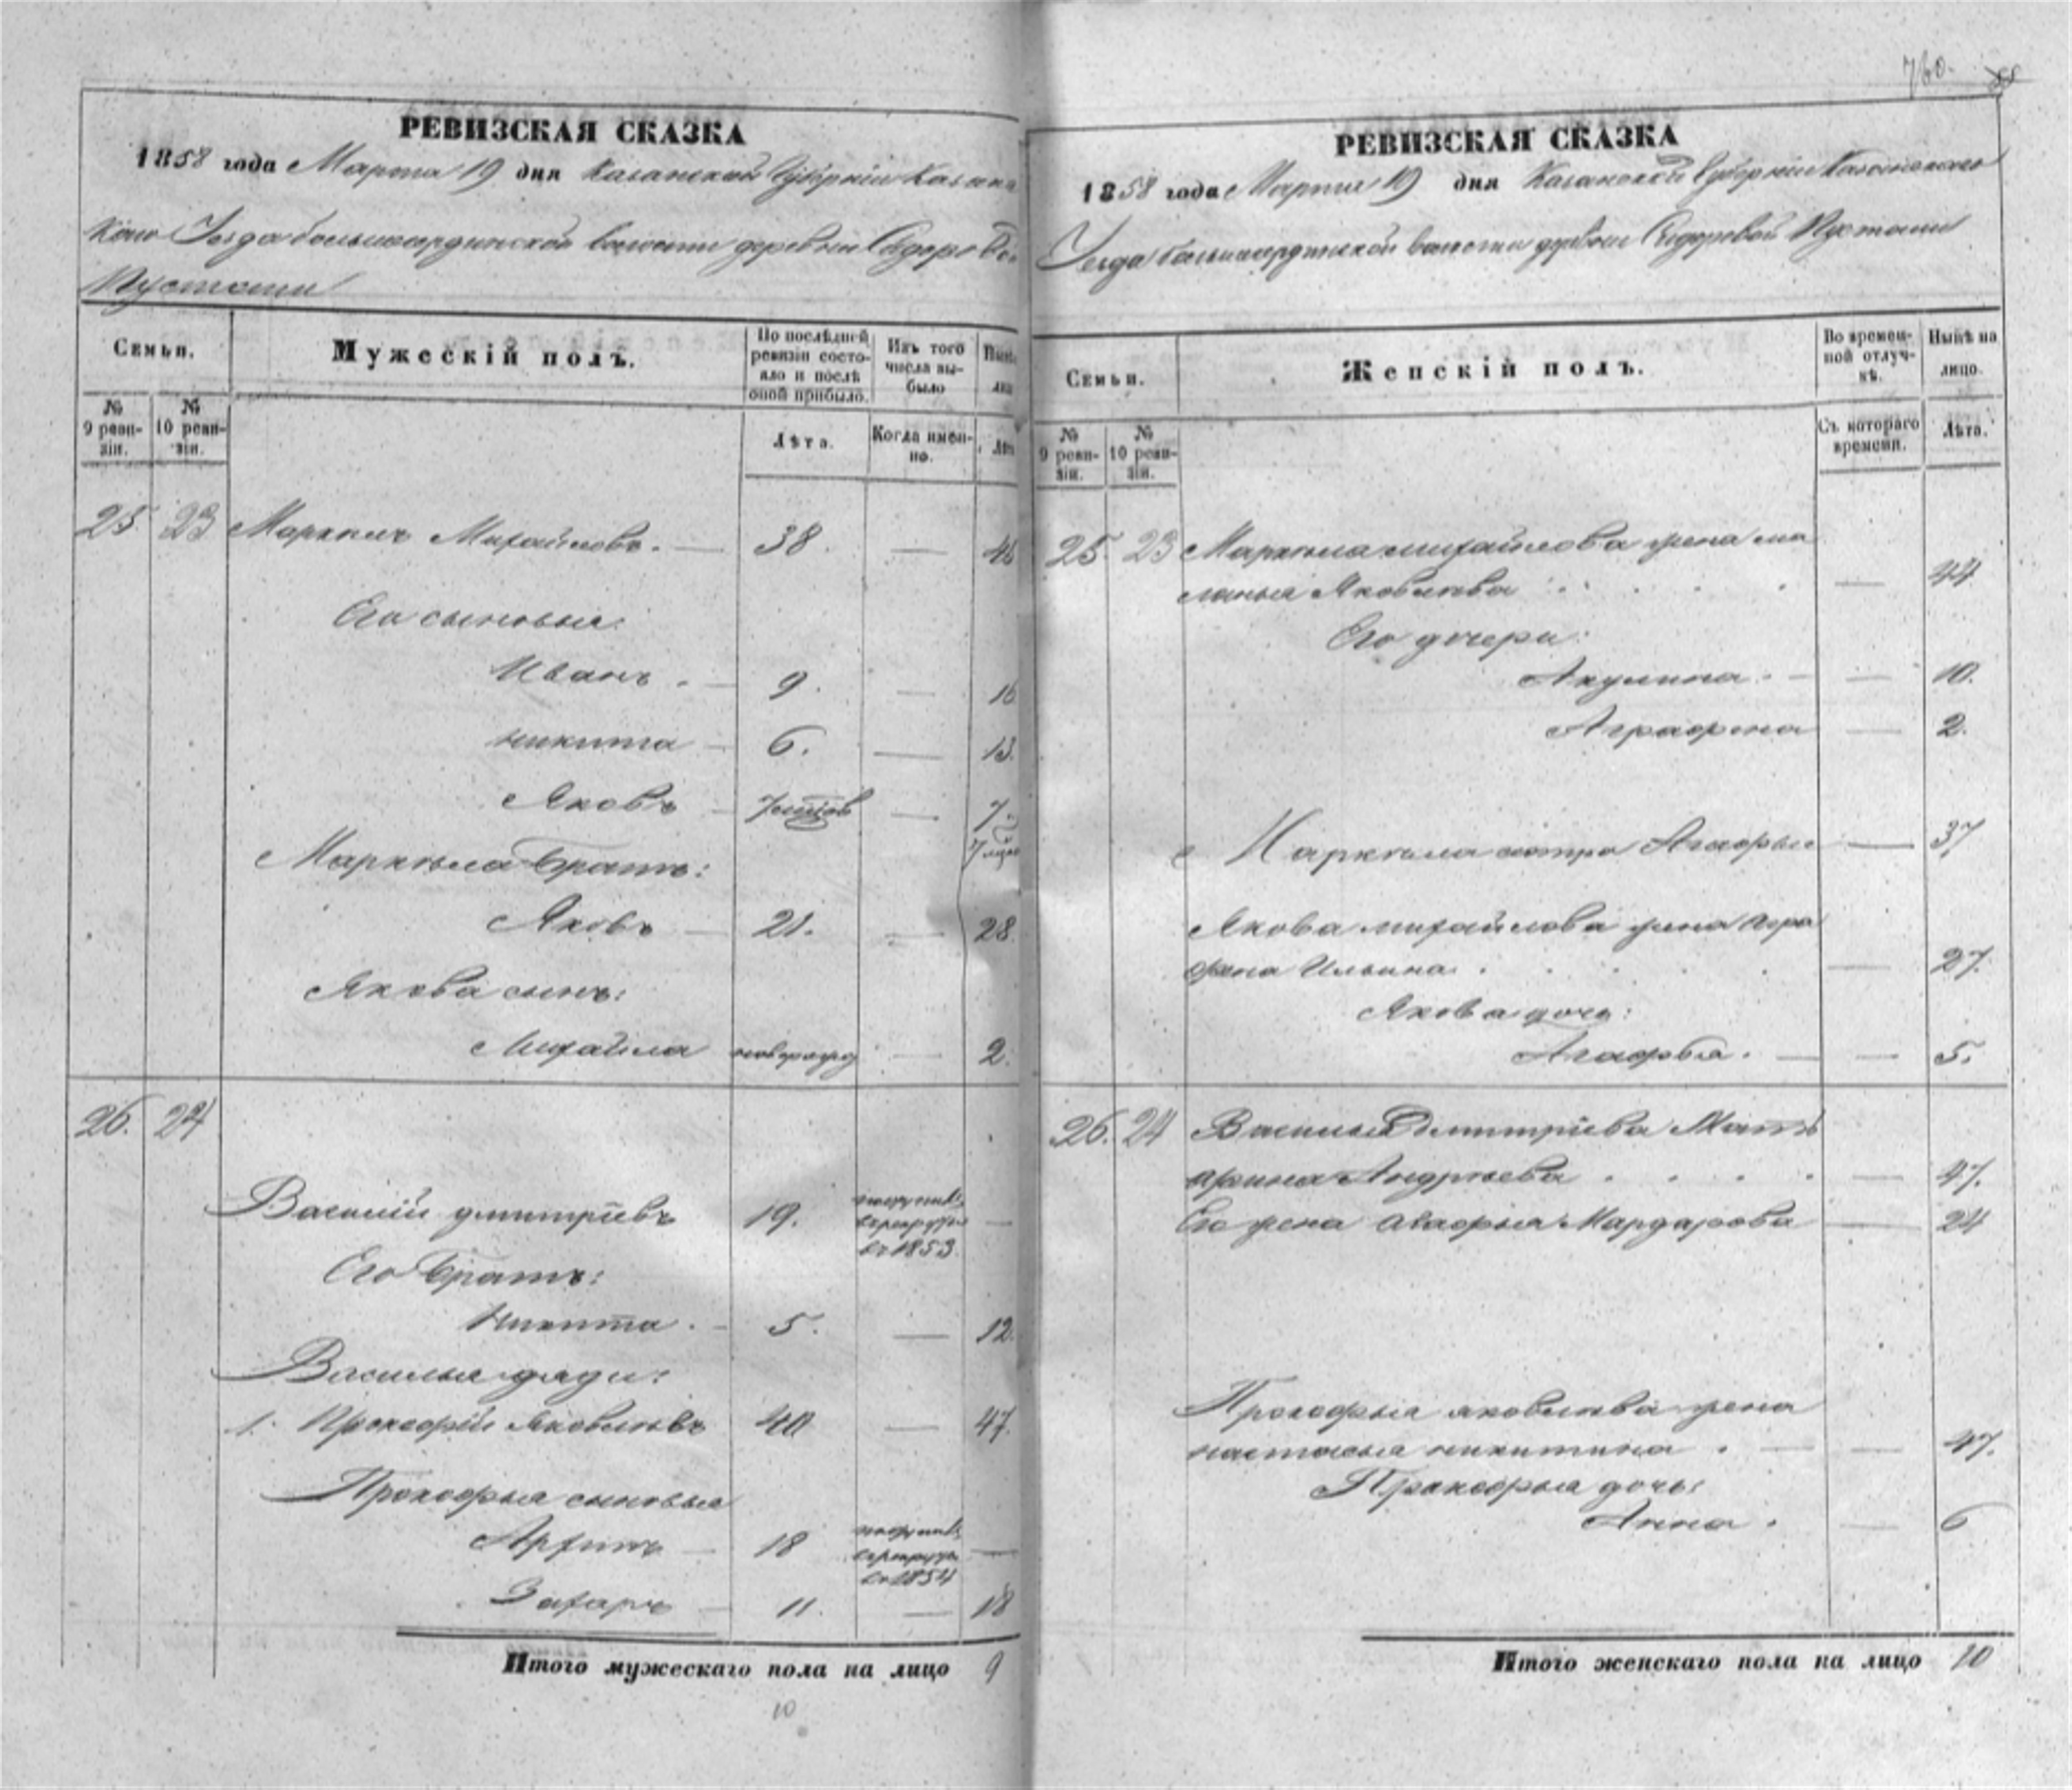 760.
РЕВИЗСКАЯ СКАЗКА
1858 года Марта 19 дня Казанской Губерніи Казанс
каго Уезда большаердинской волости деревни Сидоровой
Пустоши
Семьи.
Мужескій полъ.
По послѣдней ревизіи состояло и послѣ оной прибыло.
Изъ того числа выбыло
№ 9 ревизіи.
№ 10 ревизіи.
Лѣта.
Когда именно.
Лѣта
25 23 Маркелъ Михайловъ. 38. 45
Его сыновья:
Иванъ. 9. 16
Никита 6. 13.
Яковъ 7
Маркела Братъ:
Яковъ 21. 28.
Якова сынъ:
Михайла новорожд 2.
26. 24
Василій Дмитріевъ 19. въ рекруты въ 1853.
Его Братъ:
Никита. 5. 12.
Василья дяди:
1. Прокофій Яковлевъ 40 47.
Прокофья сыновья
Архипъ 18 въ рекруты въ 1854
Захаръ 11. 18
Итого мужескаго пола на лицо 9
10
РЕВИЗСКАЯ СКАЗКА
1858 года Марта 19 дня Казанской Губерніи Казанскаго
Уезда большаердинской волости деревни Сидоровой Пустоши
Семьи.
Женскій полъ.
Во временной отлучкѣ.
Нынѣ на лицо.
№ 9 ревизіи.
№ 10 ревизіи.
Съ котораго времени.
Лѣта.
25. 23 Маркела михайлова жена ма
ланья Яковлева 44
Его дочери:
Акулина. 10.
Аграфена 2.
Маркела сестра Агафья 37
Якова михайлова жена Агра
фена Ильина. 27.
Якова дочь:
Агафья. 5.
26. 24 Василья Дмитріева Мать
Арина Андреева 47.
Его жена Агафья Мардарова 24
Прокофья яковлева жена
настасья никитина. 47.
Прокофья дочь:
Анна. 6
Итого женскаго пола на лицо 10